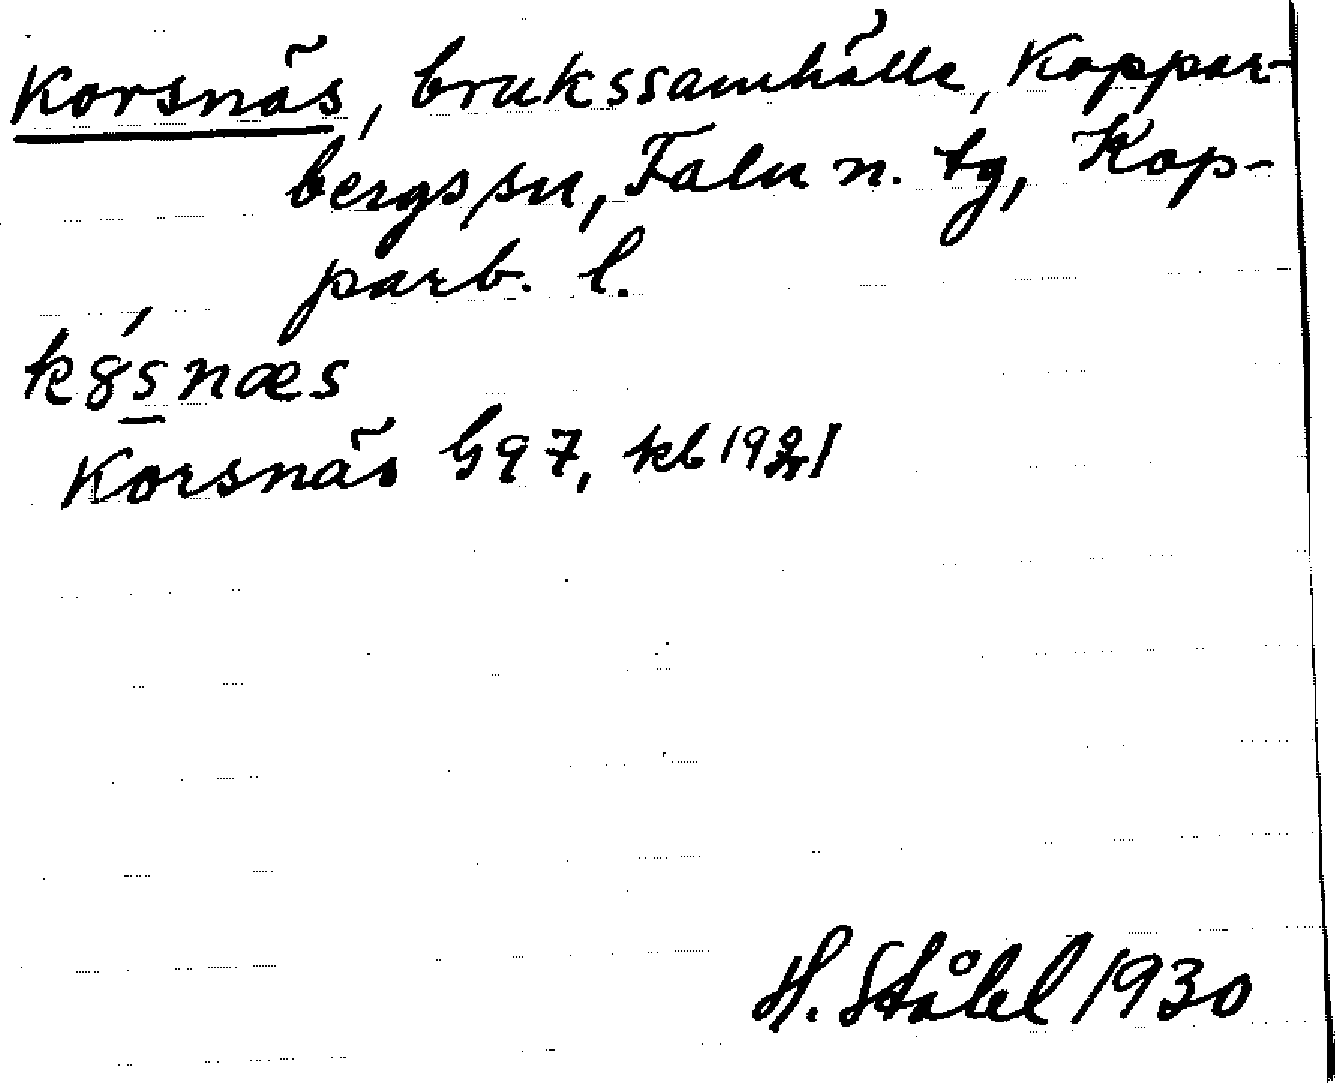 Korsnäs, brukssamhälle, Koppar-
bergs sn, Falu n. tg, Kop-
parb. l.
Korsnäs G97, kb 1921
H. Ståhl 1930